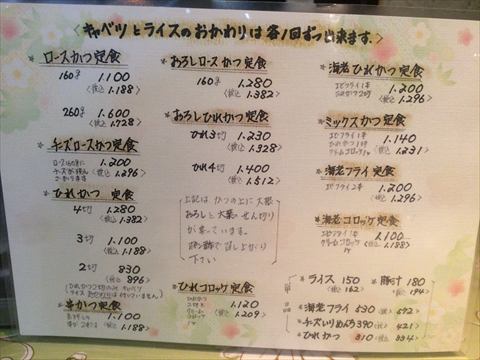 〈キャベツとライスのおかわりは各1回ずつ出来ます。〉
* ロースかつ定食
160g 1.100
〈税込 1.188〉
260g 1.600
〈税込 1.728〉
* チーズロースかつ定食
1.200
〈税込 1.296〉
* ひれかつ 定食
4切 1.280
〈税込 1.382〉
3切 1.100
〈税込 1.188〉
2切 830
〈税込 896〉
* 串かつ定食
1.100
〈税込 1.188〉
* おろしロースかつ定食
160g 1.280
〈税込 1.382〉
* おろしひれかつ定食
ひれ3切 1.230
〈税込 1.328〉
ひれ4切 1.400
〈税込 1.512〉
上記は かつの上に大根
おろしと大葉のせん切り
が乗っています。
で召し上がり
下さい
* ひれコロッケ定食
ひれかつ
1.120
〈税込 1.209〉
* 海老ひれかつ定食
エビフライ1本
ひれかつ2切
1.200
〈税込 1.296〉
* ミックスかつ定食
エビフライ1本
ひれかつ1ケ
クリームコロッケ1ケ
1.140
〈税込 1.231〉
* 海老フライ定食
エビフライ2本
1.200
〈税込 1.296〉
* 海老コロッケ定食
エビフライ1本
クリームコロッケ
1.100
〈税込 1.188〉
* ライス 150
〈税込 162〉
* 豚汁 180
〈税込 194〉
* 海老フライ 530 〈税込 572〉
* チーズいりめんち 390 〈税込 421〉
* ひれかつ 〈税込 334〉